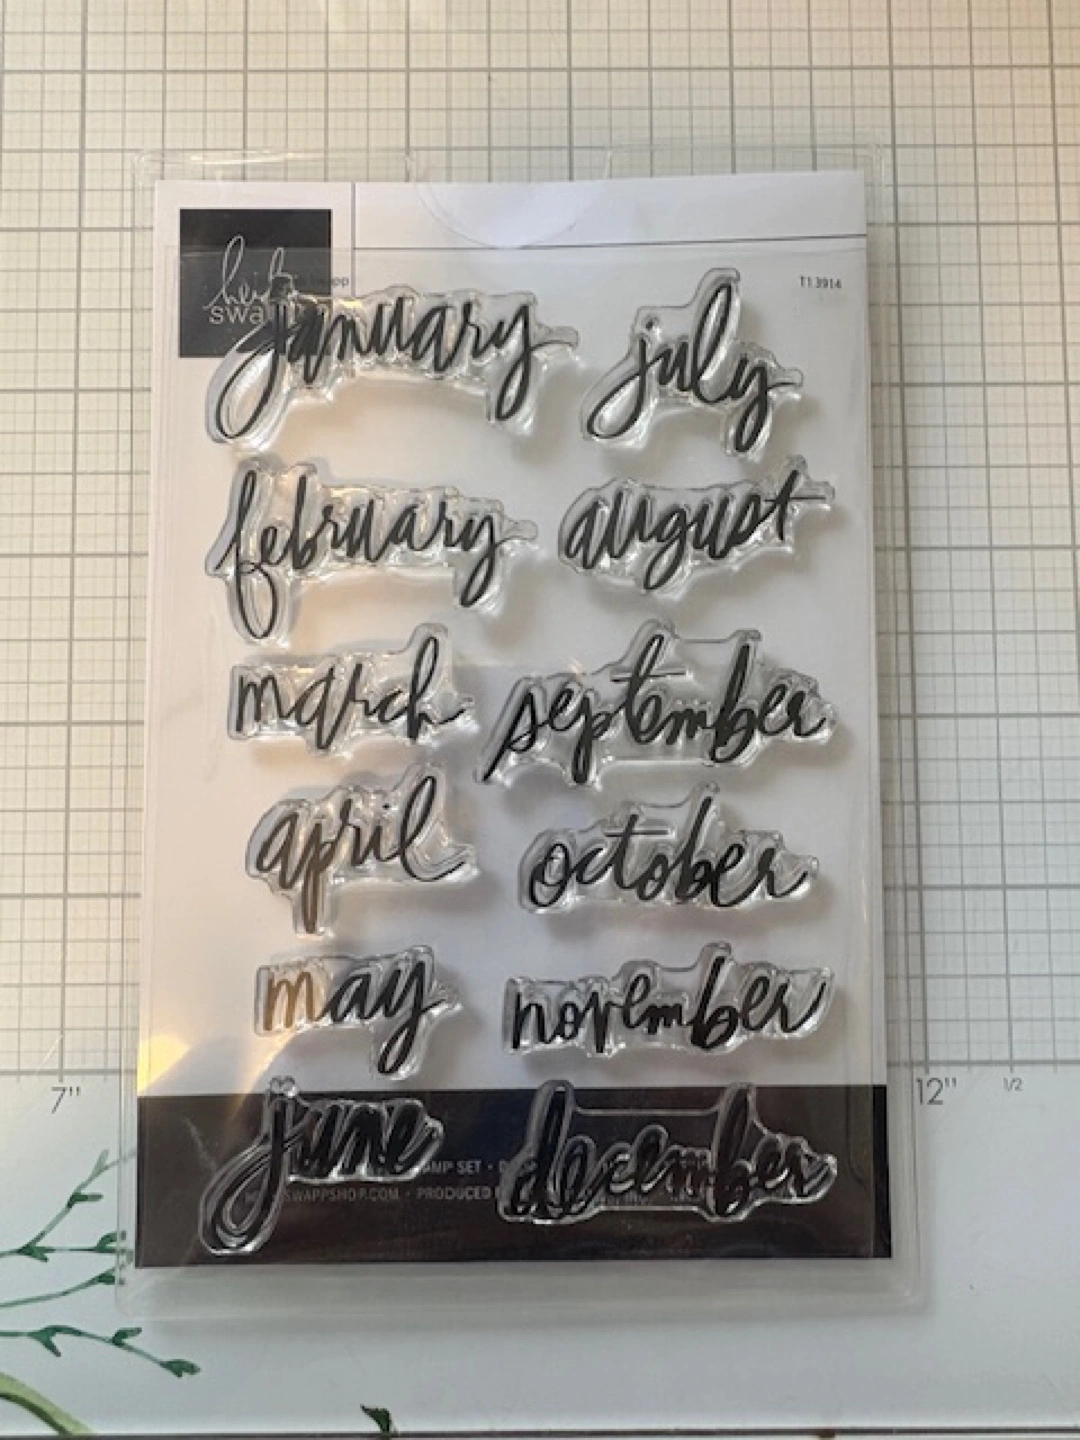 heidi
swapp
T13914
january july
february august
march september
april october
may november
june december
STAMP SET •
SWAPPSHOP.COM • PRODUCED
7" 12" 1/2